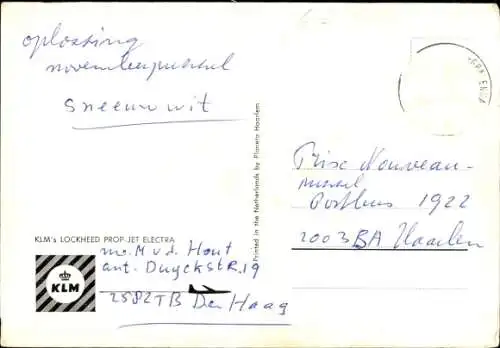 oplossing
novemberpuzzel
sneeuwwit
KLM's LOCKHEED PROP-JET ELECTRA
mw. M v d. Hout
ant. Duyckstr. 19
2582TB Den Haag
KLM
Printed in the Netherlands by Planeta Haarlem
Prise Nouveau-
puzzel
Postbus 1922
2003BA Haarlem